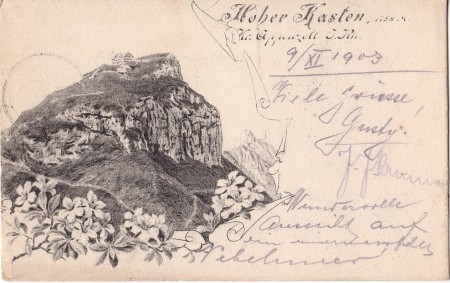 Hoher Kasten,
Kt. Appenzell I. Rh.
9/XI 1903
Viele Grüsse,
Gusty.
Wundervolle
Aussicht auf
Nebelmeer